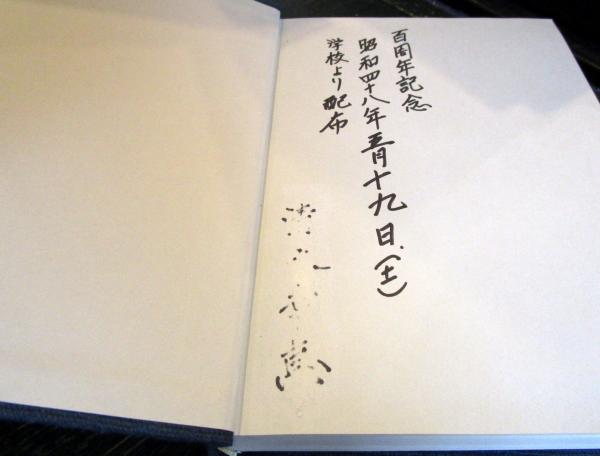 百周年記念
昭和四十八年五月十九日(土)
学校より配布